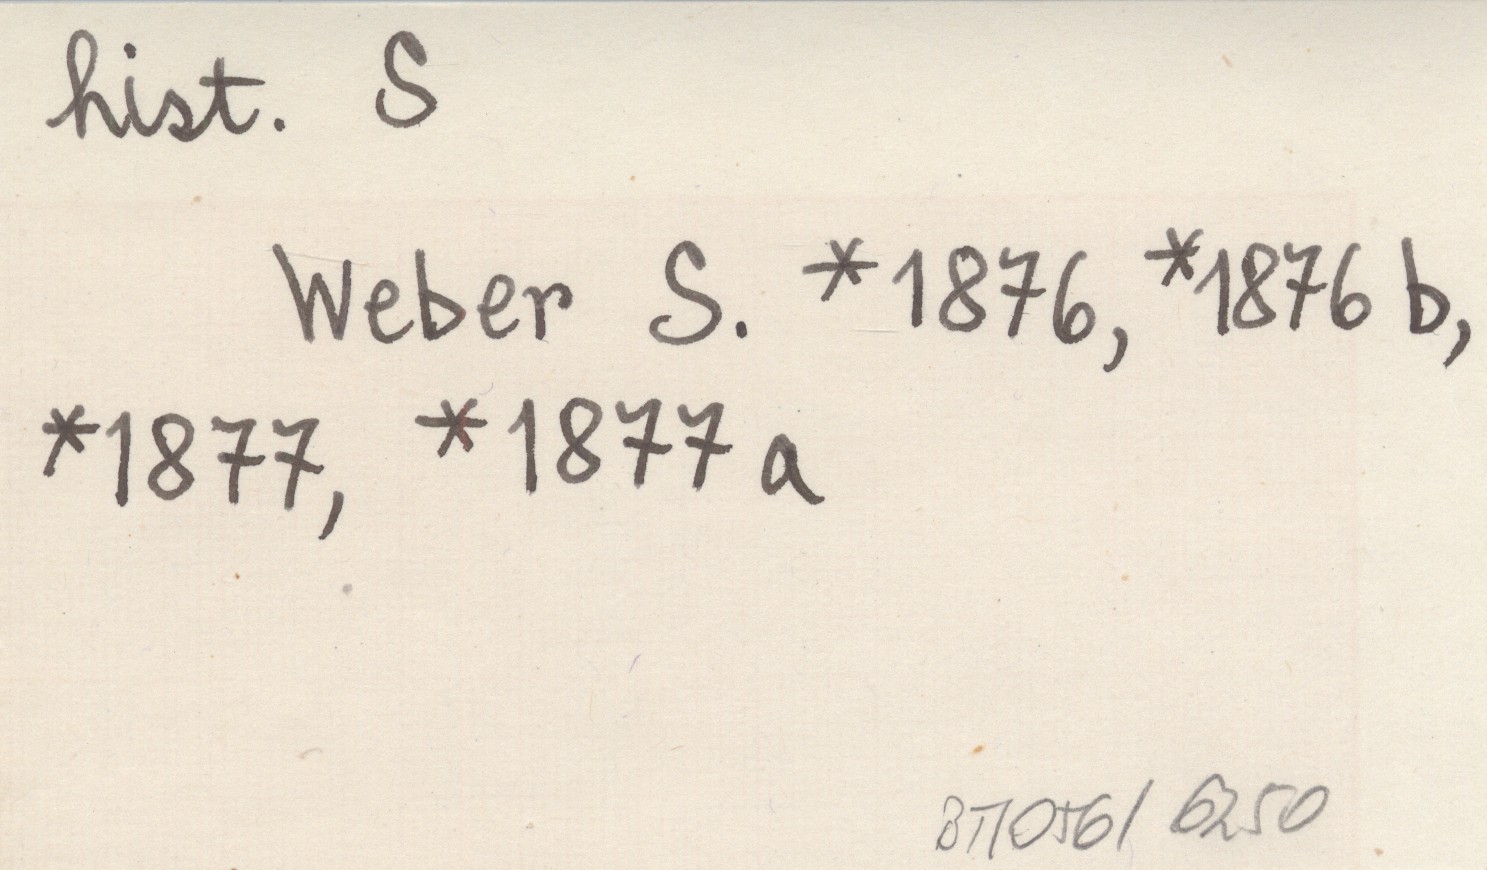 hist. S
Weber S. *1876, *1876 b,
*1877, *1877 a
6250